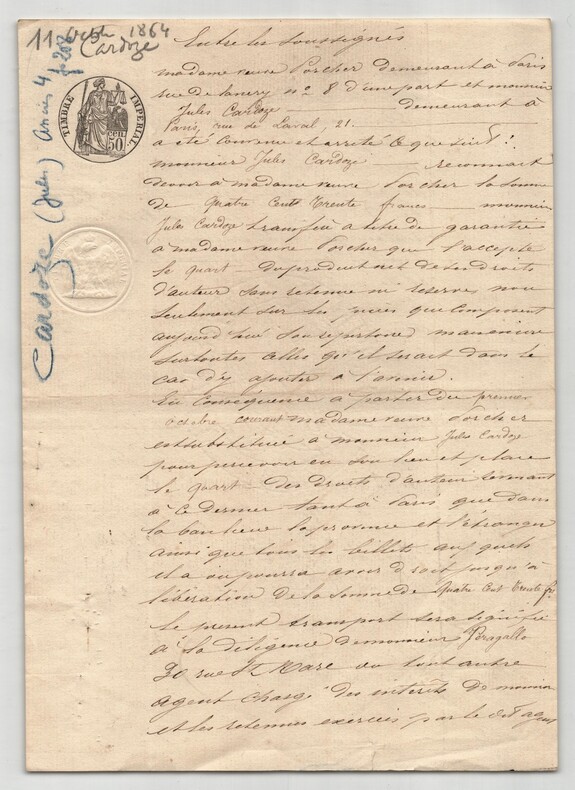 11 octobre 1864
Cardoze
Cardoze (Jules) Ancien 4
TIMBRE IMPÉRIAL
50
Entre les soussignés
madame veuve Porcher demeurant à Paris
rue de Lancry n° 8 d'une part et monsieur
Jules Cardoze demeurant à
Paris, rue de Laval, 21.
a été convenu et arrêté ce qui suit:
monsieur Jules Cardoze reconnait
devoir à madame veuve Porcher la somme
de Quatre Cents Trente francs monsieur
Jules Cardoze transfère à titre de garantie
à madame veuve Porcher qui l'accepte
le quart du produit net de ses droits
d'auteur sans retenue ni réserves non
seulement sur les pièces que composent
aujourd'hui son répertoire mais encore
sur toutes celles qu'il serait dans le
cas d'y ajouter à l'avenir.
En conséquence à partir du premier
octobre courant madame veuve Porcher
est substituée à monsieur Jules Cardoze
pour percevoir en son lieu et place
le quart des droits d'auteur revenant
à ce dernier tant à Paris que dans
la banlieue la province et l'étranger
ainsi que tous les billets auxquels
il a ou pourra avoir droit jusqu'à
libération de la somme de Quatre Cent Trente fr.
Le présent transport sera signifié
à sa diligence de monsieur Peragallo
30 rue St Marc ou tout autre
agent chargé des intérêts de monsieur
et les retenues exercées par le dit agent